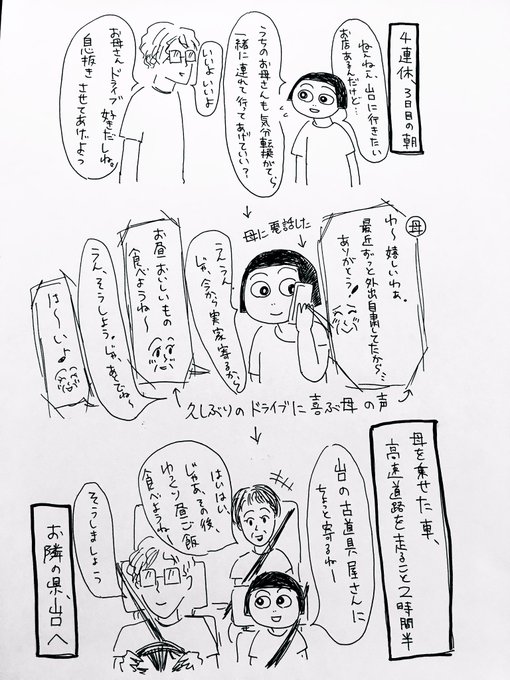 4連休、3日目の朝
ねぇねぇ、山口に行きたい
お店あるんだけど…
うちのお母さんも気分転換がてら
一緒に連れて行ってあげていい？
いいよいいよ
お母さんドライブ
好きだしね。
息抜き
させてあげよっ
母
わ〜嬉しいわぁ。
最近ずっと外出自粛してたから…
ありがとう！
母に電話した
ううん
じゃ、今から実家寄るから
お昼おいしいもの
食べようね〜
うん、そうしよう！じゃ、あとでね〜
は〜いよ
久しぶりのドライブに喜ぶ母の声
母を乗せた車、
高速道路を走ること2時間半
山口の古道具屋さんに
ちょっと寄るねー
はいはい、
じゃあ、その後、
ゆっくり昼ご飯
食べようね
そうしましょう
お隣の県、山口へ